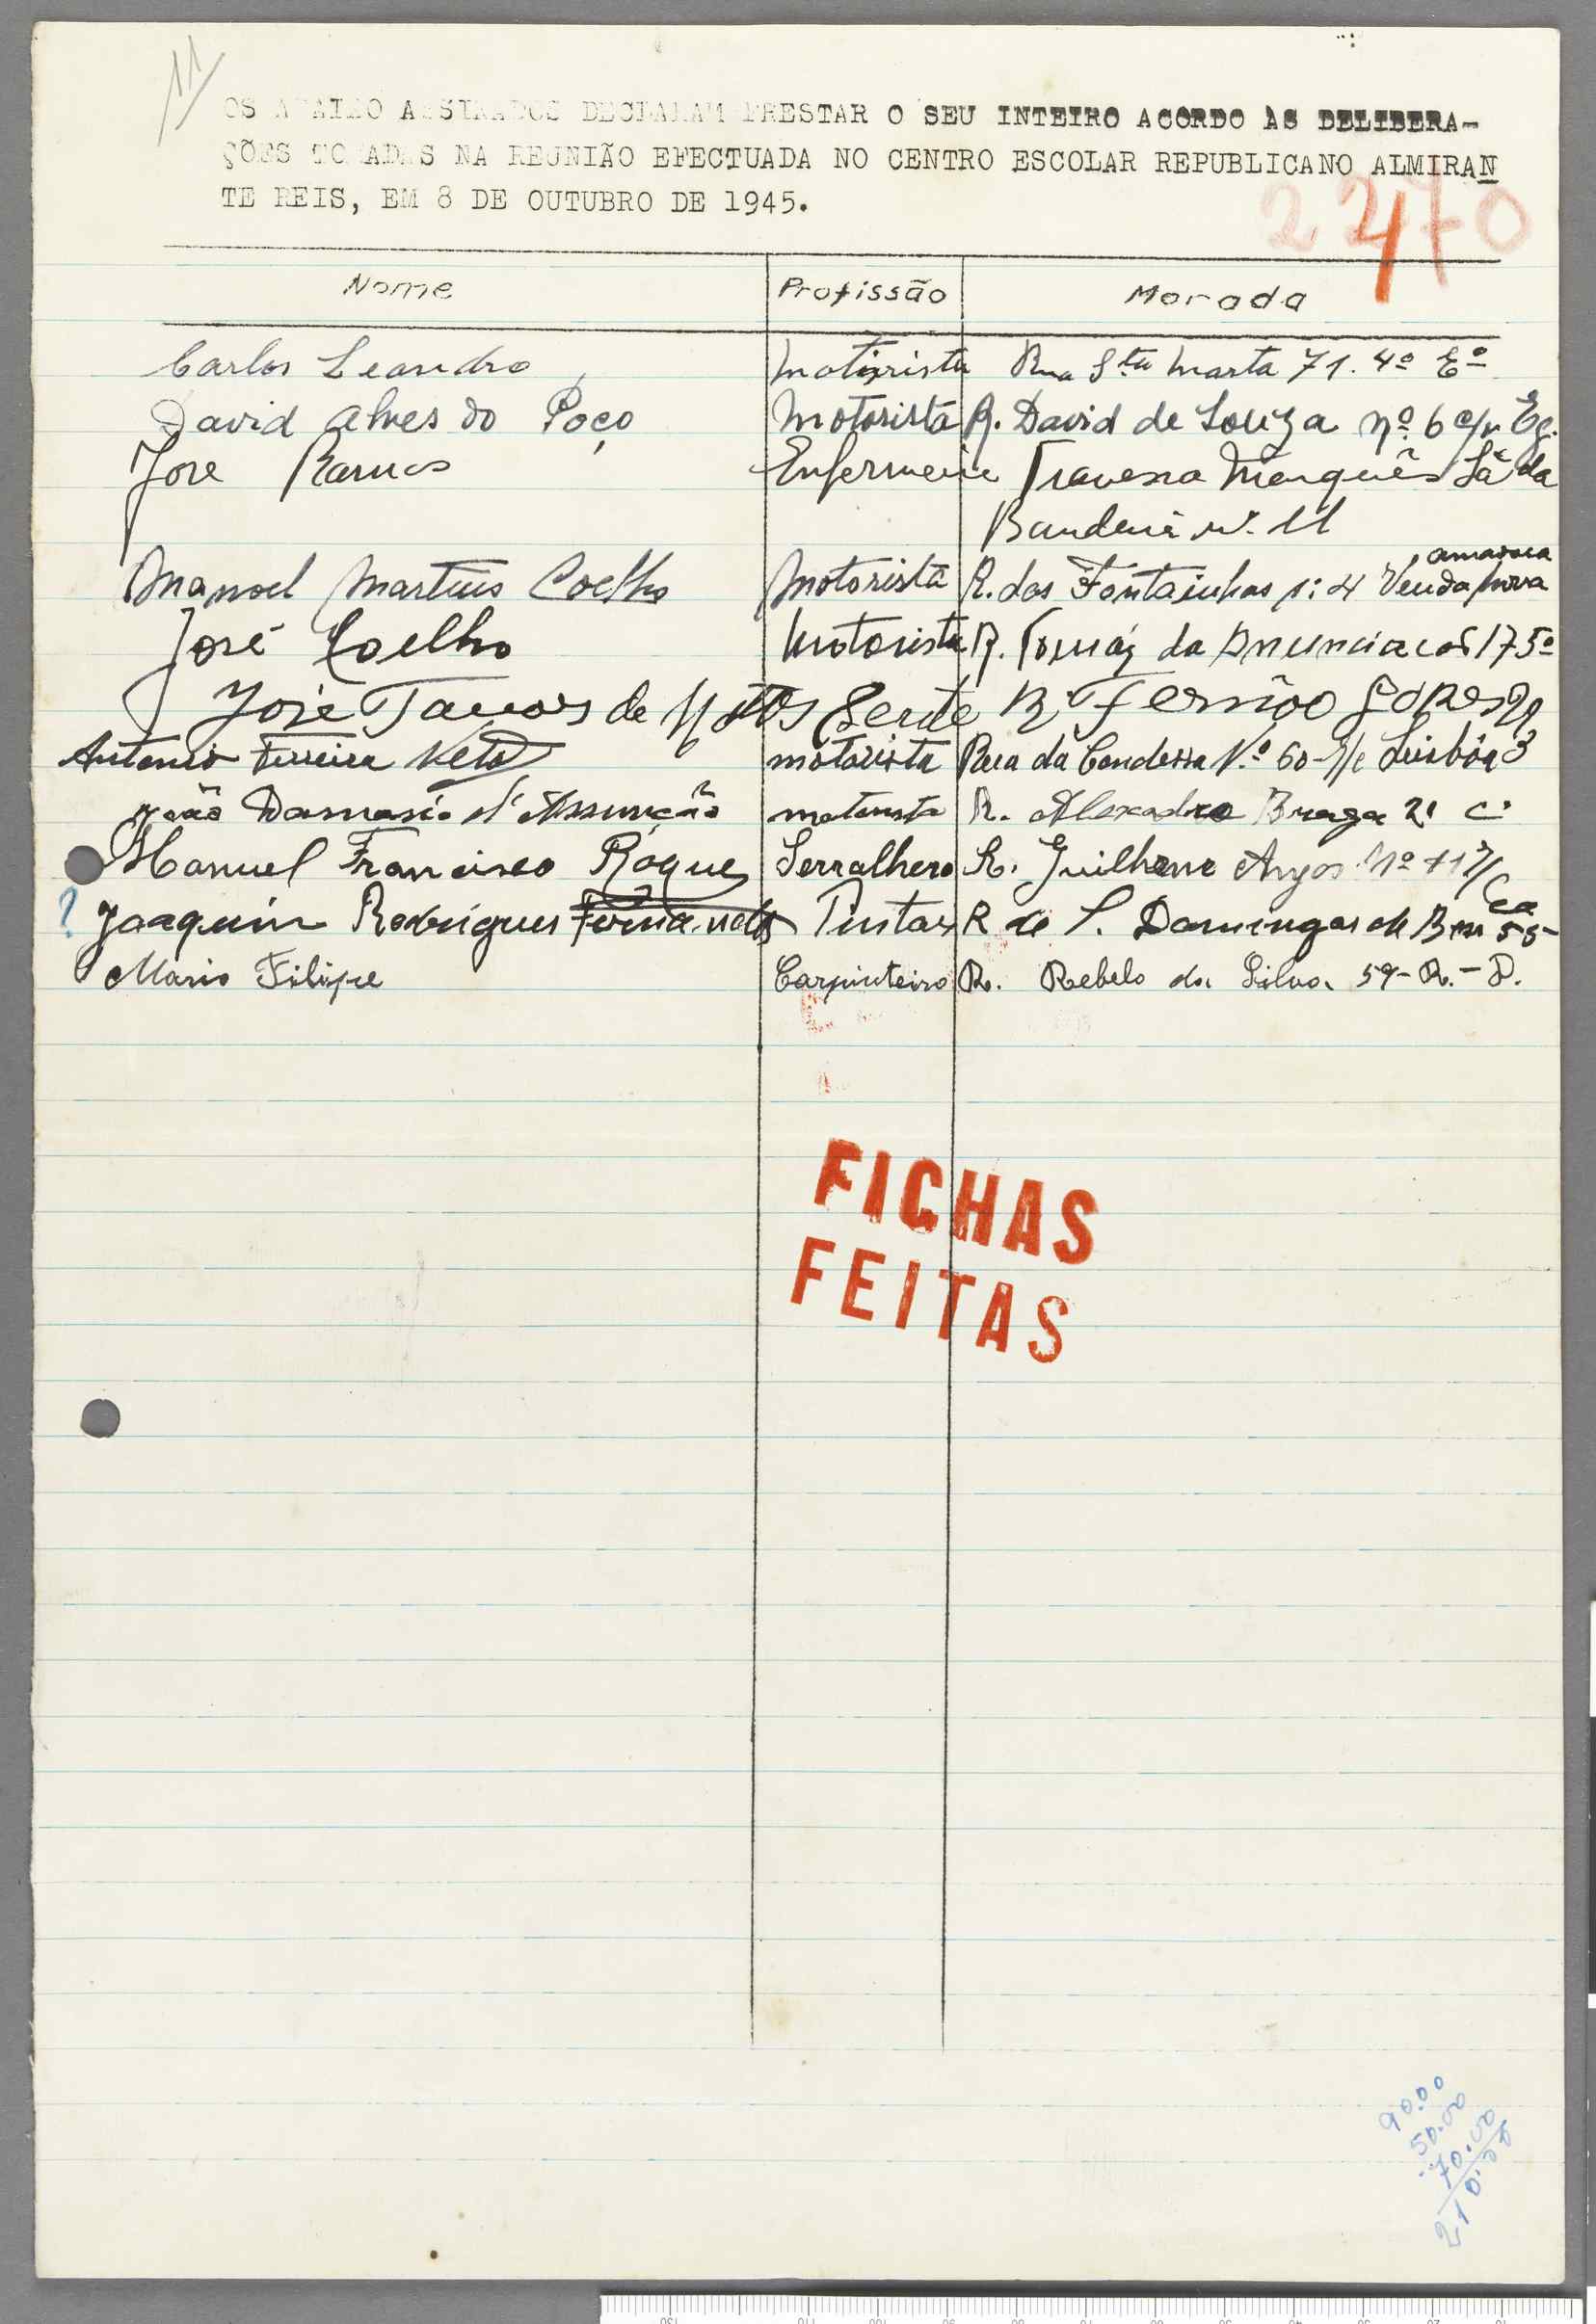 11
OS ABAIXO ASSINADOS DECLARAM PRESTAR O SEU INTEIRO ACORDO ÀS DELIBERA-
ÇÕES TOMADAS NA REUNIÃO EFECTUADA NO CENTRO ESCOLAR REPUBLICANO ALMIRAN
TE REIS, EM 8 DE OUTUBRO DE 1945.
2470
Nome Profissão Morada
Carlos Leandro Motorista Rua Sta Marta 71. 4º Eº
David Alves do Poço Motorista R. David de Souza nº. 6 Eq.
José Ramos Enfermeiro Travessa Marquês Sá da
Bandeira nº. 11
Amadora
Manoel Martins Coelho Motorista R. das Fontainhas 4 Venda Nova
José Coelho Motorista R. Tomáz da Anunciacão 17 5º
José Tavares de R. Fernão Lopes
Antonio Ferreira Neto motorista Rua da Condessa N.º 60 Lisbôa 3
João Damasio d'Assunção motorista R. Alexadre Braga 21 c.
Manuel Francisco Roque Serralhero R. Guilherme Anjos Nº
? Joaquim Rodrigues Fernandes Pintor R de S. Domingos de Ben
ca
55
Mario Filipe Carpinteiro R. Rebelo da Silva, 59-R.-D.
FICHAS
FEITAS
90.00
50.00
70.00
210.00